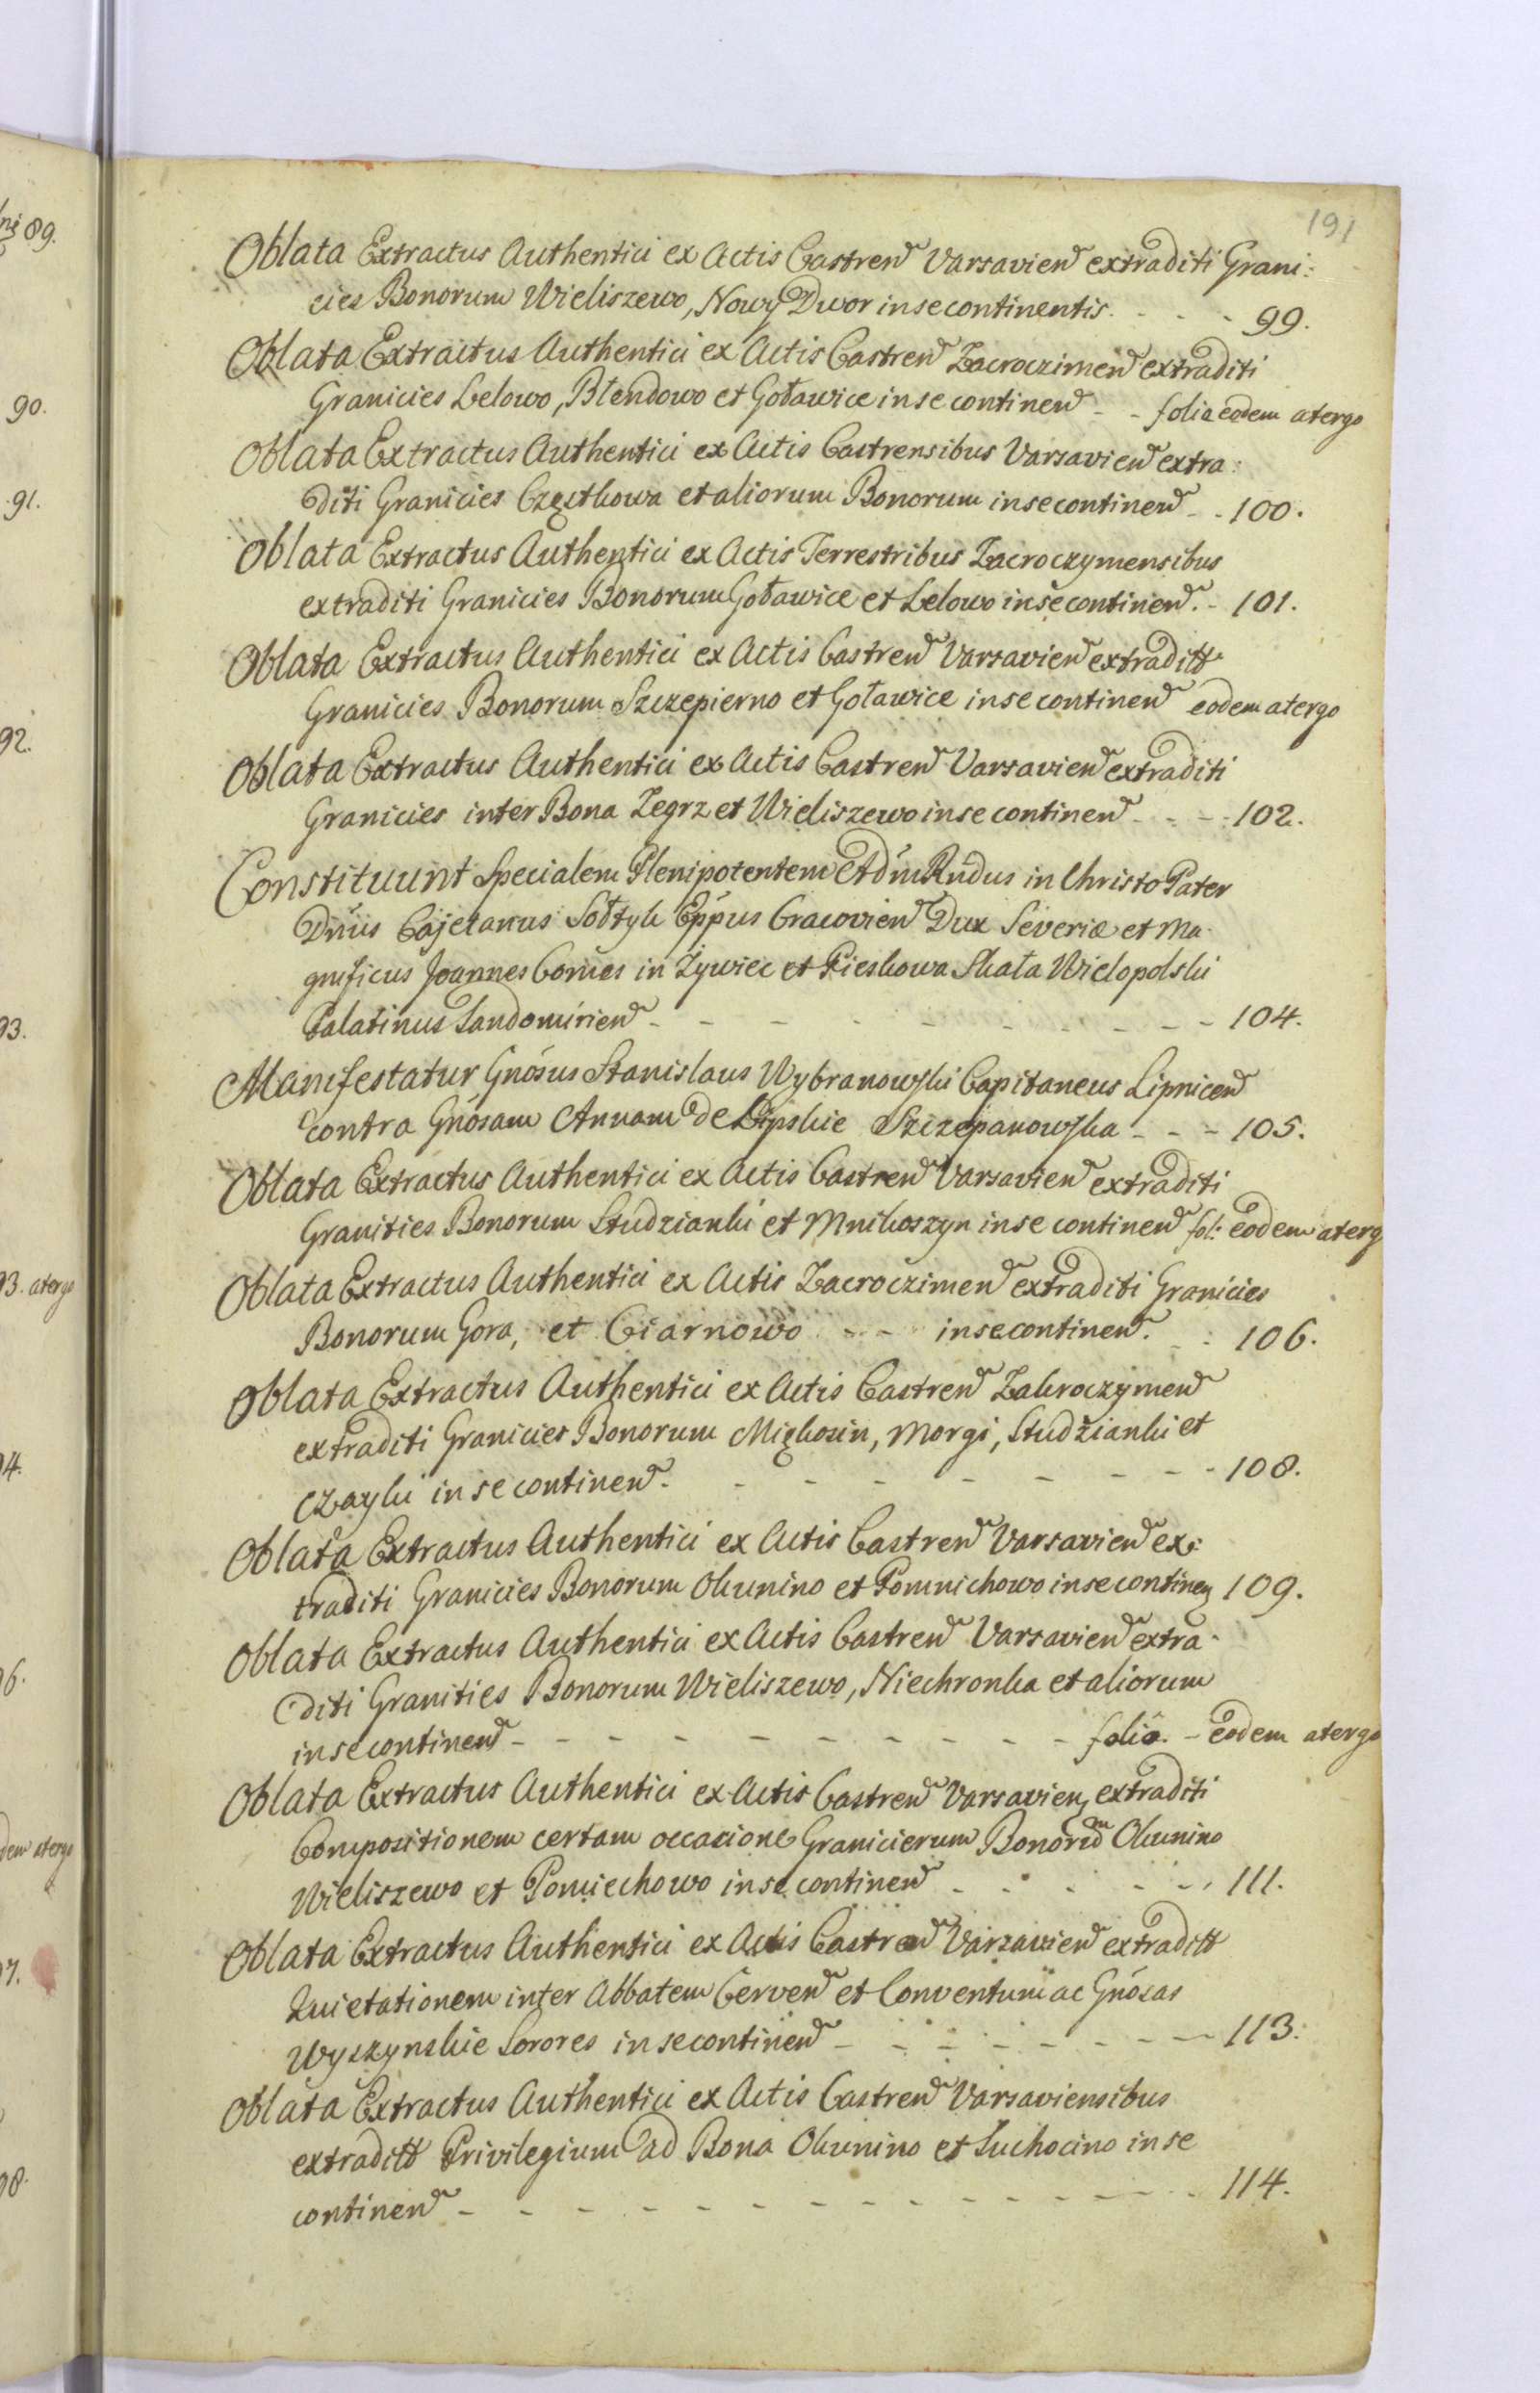 191
Oblata Extractus Authentici ex Actis Castren Varsavien extraditi Grani:
cies Bonorum Wieliszewo, Nowy Dwor in se continentis. - - - 99.
Oblata Extractus Authentici ex Actis Castren Zacroczimen extraditi
Granicies Lelowo, Błendowo et Goławice in se continen - - folio eodem atergo
Oblata Extractus Authentici ex Actis Castrensibus Varsavien extra:
diti Granicies Częstkowa et aliorum Bonorum in se continen - - 100.
Oblata Extractus Authentici ex Actis Terrestribus Zacroczymensibus
extraditi Granicies Bonorum Goławice et Lelowo in se continen. - 101.
Oblata Extractus Authentici ex Actis Castren Varsavien extraditt
Granicies Bonorum Szczepierno et Goławice in se continen eodem atergo
Oblata Extractus Authentici ex Actis Castren Varsavien extraditi
Granicies inter Bona Zegrz et Wieliszewo in se continen - - - 102.
Constituunt Specialem Plenipotentem Adm Rndus in Christo Pater
Dnus Cajetanus Sołtyk Eppus Cracovien Dux Severiæ et Ma-
gnificus Joannes Comes in Zywiec et Pieskowa Skała Wielopolski
Palatinus Sandomirien - - - - - - - - - 104.
Manifestatur Gnosus Stanislaus Wybranowski Capitaneus Lipnicen
contra Gnosam Annam de Lipskie Szczepanowska - - - 105.
Oblata Extractus Authentici ex Actis Castren Varsavien extraditi
Granities Bonorum Studzianki et Mnikoszyn in se continen fol: eodem aterg
Oblata Extractus Authentici ex Actis Zacroczimen extraditi Granicies
Bonorum Gora, et Ciarnowo - - - in se continen. - - 106.
Oblata Extractus Authentici ex Actis Castren Zakroczymen
extraditi Granicies Bonorum Miękoszin, Morgi, Studzianki et
Czayki in se continen. - - - - - - - 108.
Oblata Extractus Authentici ex Actis Castren Varsavien ex:
traditi Granicies Bonorum Okunino et Pomnichowo in se continen 109.
Oblata Extractus Authentici ex Actis Castren Varsavien extra-
diti Granities Bonorum Wieliszewo, Niechronka et aliorum
in se continen - - - - - - - - - folio. - eodem atergo
Oblata Extractus Authentici ex Actis Castren Varsavien extraditi
Compositionem certam occasione Granicierum Bonorum Okunino
Wieliszewo et Pomiechowo in se continen - - - - - - 111.
Oblata Extractus Authentici ex Actis Castren Varsavien extraditt
Quietationem inter Abbatem Cerven et Conventum ac Gnosas
Wyszynskie Sorores in se continen - - - - - - - 113.
Oblata Extractus Authentici ex Actis Castren Varsaviensibus
extraditt Privilegium ad Bona Okunino et Suchocino in se
continen - - - - - - - - - - - - 114.
89.
90.
91.
92.
93.
93. atergo
94.
96.
dem atergo
97.
98.